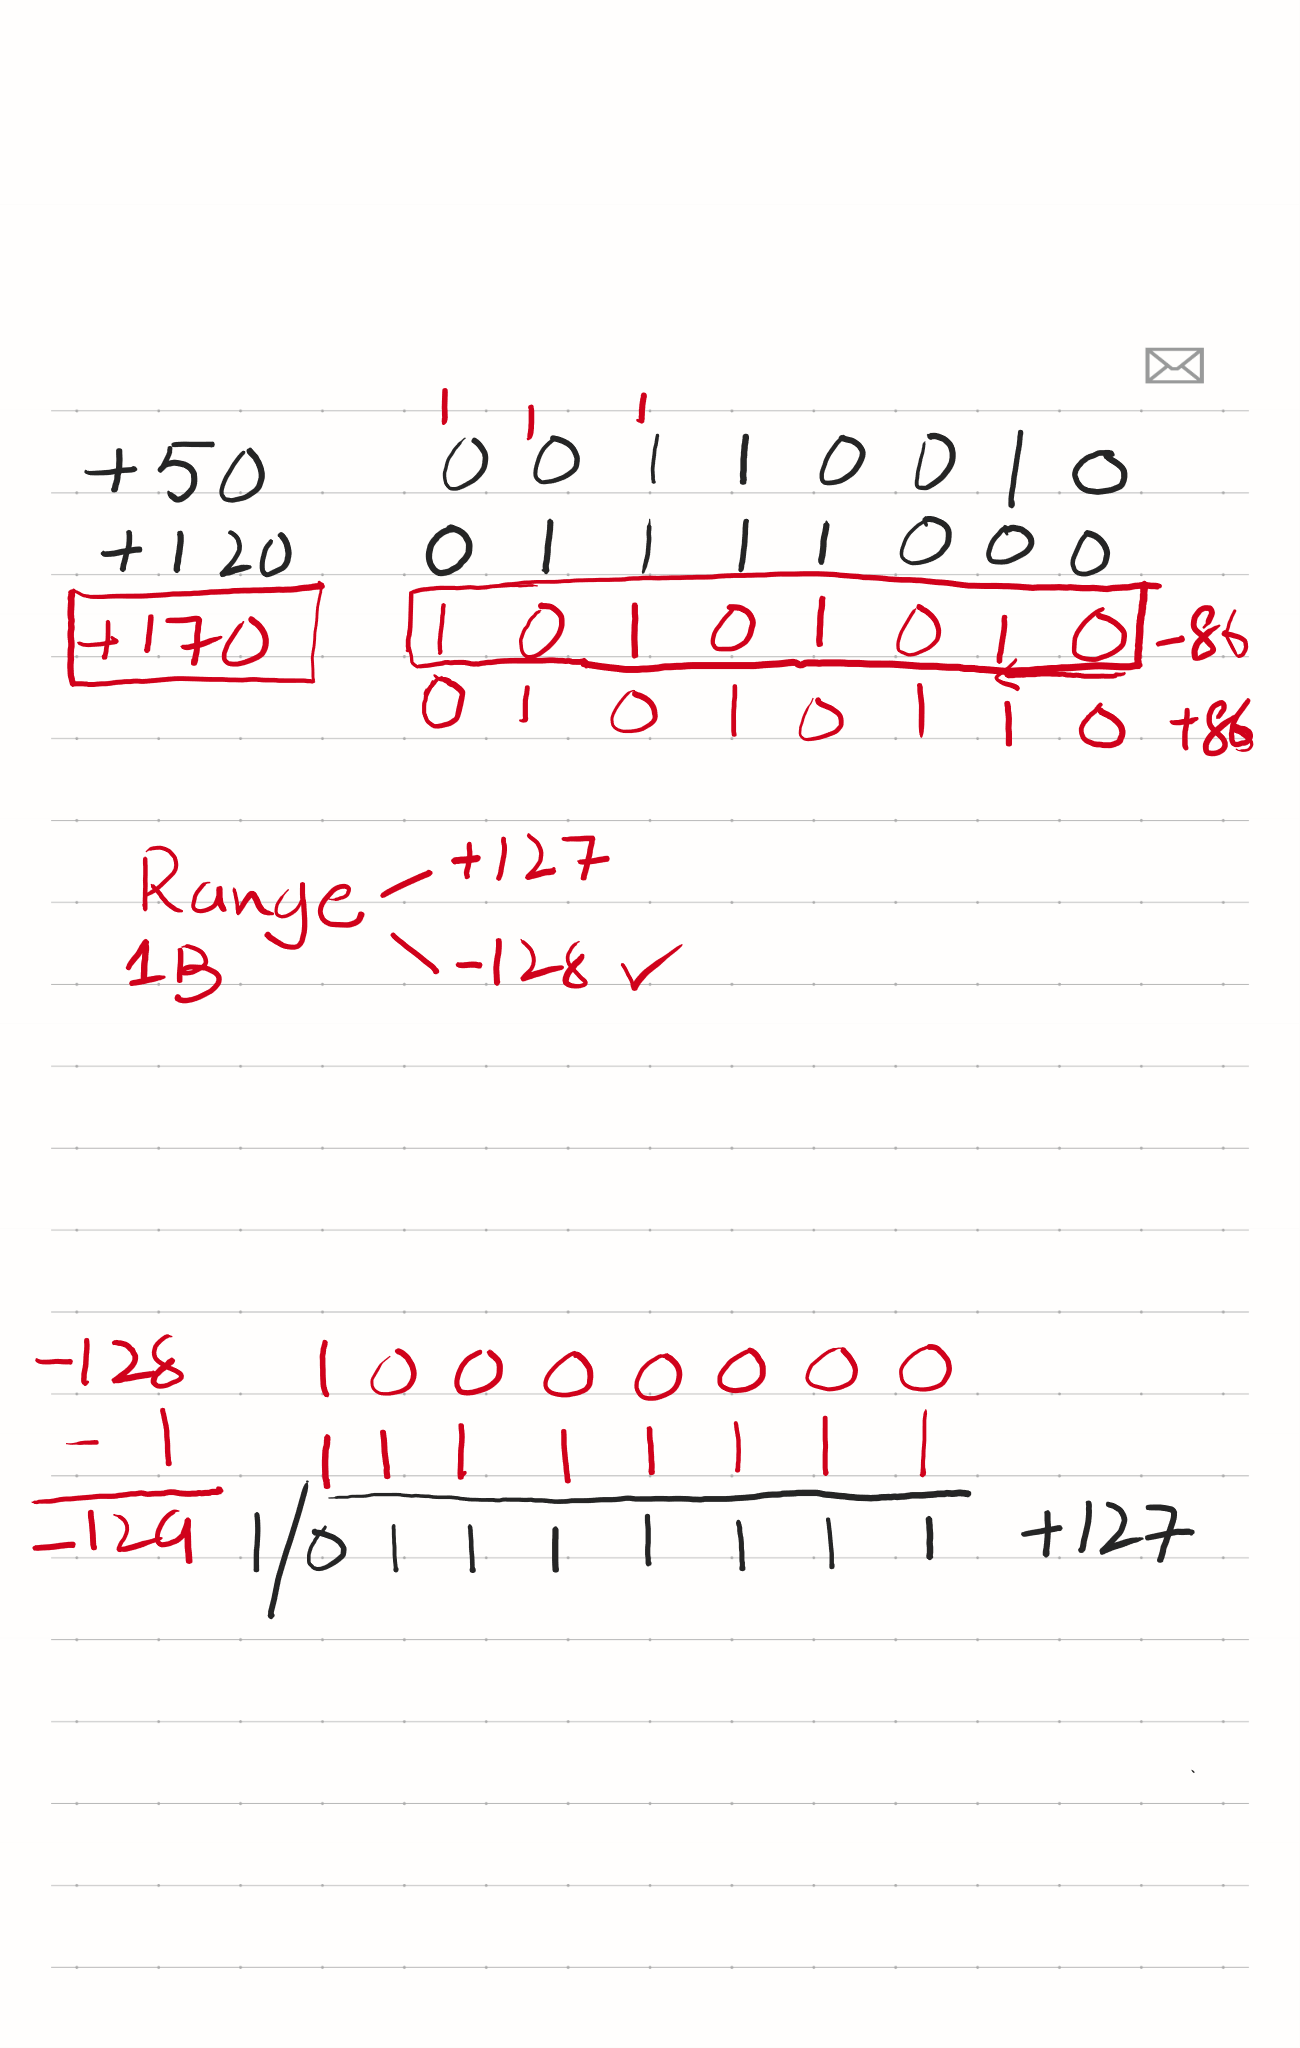 1 1 1
+50 0 0 1 1 0 0 1 0
+120 0 1 1 1 1 0 0 0
+170 1 0 1 0 1 0 1 0 -86
0 1 0 1 0 1 1 0 +86
Range +127
1B -128 ✓
-128 1 0 0 0 0 0 0 0
- 1 1 1 1 1 1 1 1 1
-129 1/0 1 1 1 1 1 1 1 +127